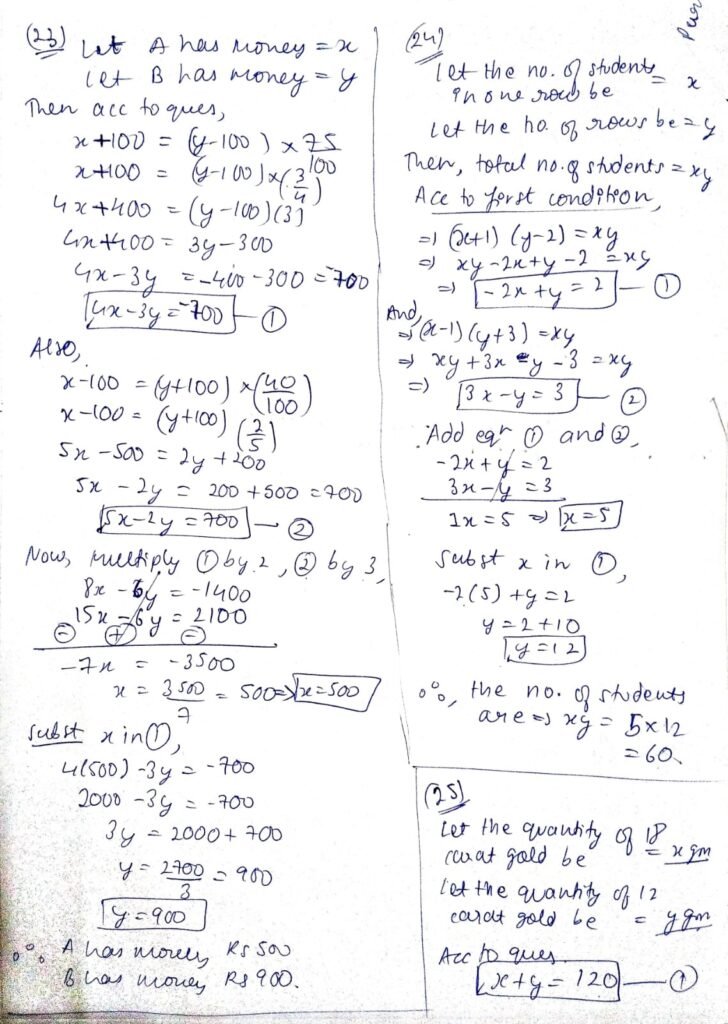 (23) Let A has money = x
Let B has money = y
Then acc to ques,
x+100 = (y-100) x 75
100
x+100 = (y-100)x(3/4)
4x+400 = (y-100)(3)
4x+400 = 3y-300
4x-3y = -400-300 = -700
4x-3y = -700 — ①
Also,
x-100 = (y+100) x (40/100)
x-100 = (y+100) (2/5)
5x-500 = 2y+200
5x-2y = 200+500 = 700
5x-2y = 700 — ②
Now, multiply ① by 2, ② by 3,
8x-6y = -1400
15x-6y = 2100
⊖ ⊕ ⊖
-7x = -3500
x = 3500/7 = 500 ⇒ x=500
Subst x in ①,
4(500)-3y = -700
2000-3y = -700
3y = 2000+700
y = 2700/3 = 900
y=900
∴ A has money Rs 500
B has money Rs 900.
(24)
Let the no. of students
in one row be = x
Let the no. of rows be = y
Then, total no. of students = xy
Acc to first condition,
⇒ (x+1) (y-2) = xy
⇒ xy-2x+y-2 = xy
⇒ -2x+y = 2 — ①
And,
⇒ (x-1)(y+3) = xy
⇒ xy+3x-y-3 = xy
⇒ 3x-y = 3 — ②
Add eqn ① and ②,
-2x+y = 2
3x-y = 3
1x=5 ⇒ x=5
Subst x in ①,
-2(5)+y=2
y=2+10
y=12
∴, the no. of students
are ⇒ xy = 5x12
=60.
(25)
Let the quantity of 18
carat gold be = x gm
Let the quantity of 12
carat gold be = y gm
Acc to ques.
x+y = 120 — ①